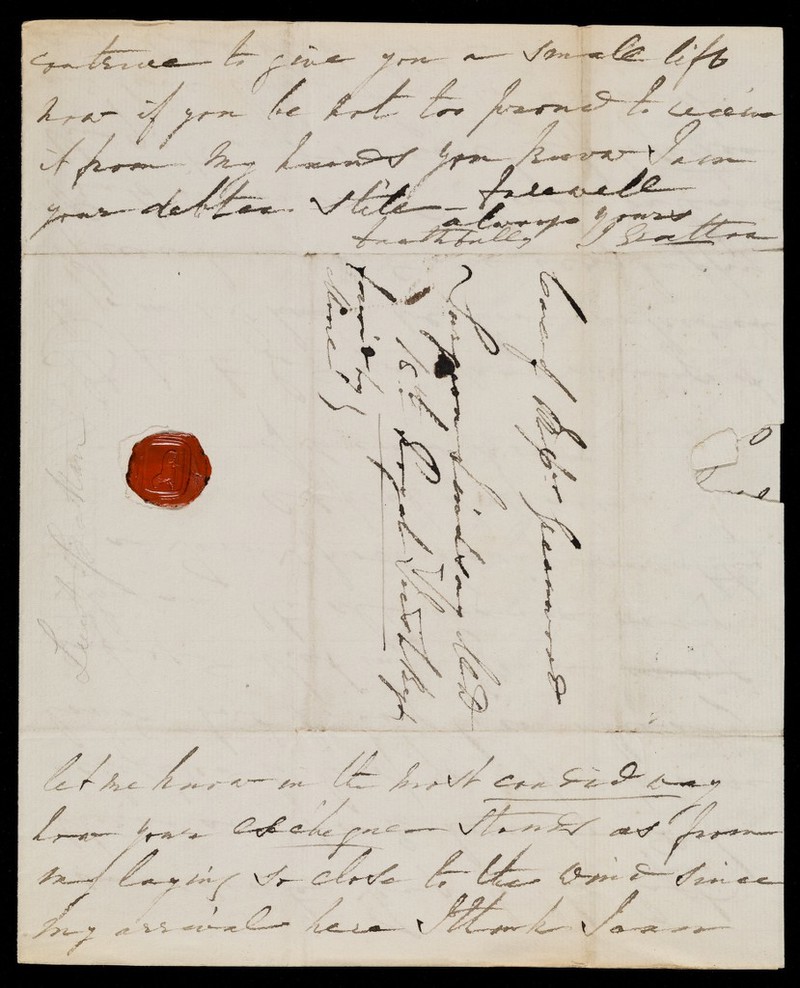 contrive to give you a small lift
now if you be not too proud to receive
it from my hands you know I am
your debtor still – farewell
always yours
faithfully
Care of Messrs Greenwood
Surgeon Lindsay
18th Royal Irish Regt
let me know in the most candid way
how your exchequer stands as from
my laying so close to the wind since
my arrival here I think I can